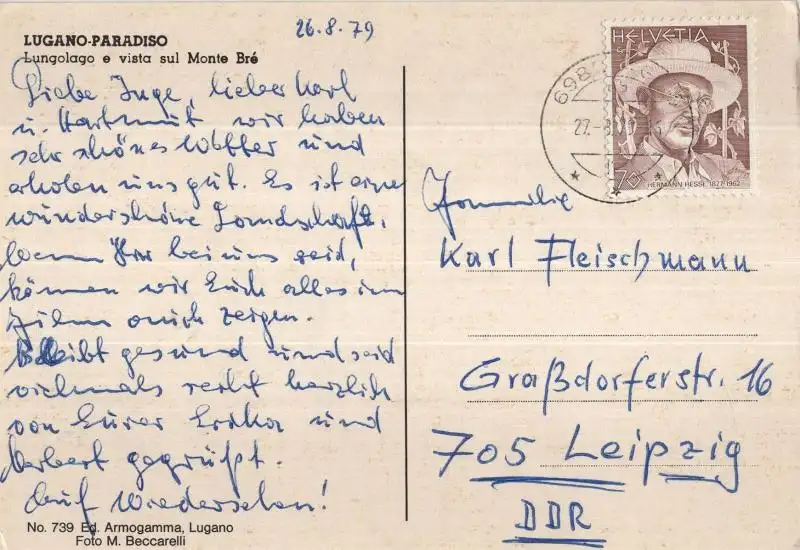 26.8.79
LUGANO-PARADISO
Lungolago e vista sul Monte Bré
Liebe Inge, lieber Karl
u. Hartmut wir haben
sehr schönes Wetter und
erholen uns gut. Es ist eine
wunderschöne Landschaft.
Wenn Ihr bei uns seid,
können wir Euch alles im
Film auch zeigen.
Bleibt gesund und seid
vielmals recht herzlich
von Eurer Erika und
Herbert gegrüßt.
Auf Wiedersehen!
No. 739 Ed. Armogamma, Lugano
Foto M. Beccarelli
HELVETIA
70
HERMANN HESSE 1877-1962
Familie
Karl Fleischmann
Graßdorferstr. 16
705 Leipzig
DDR